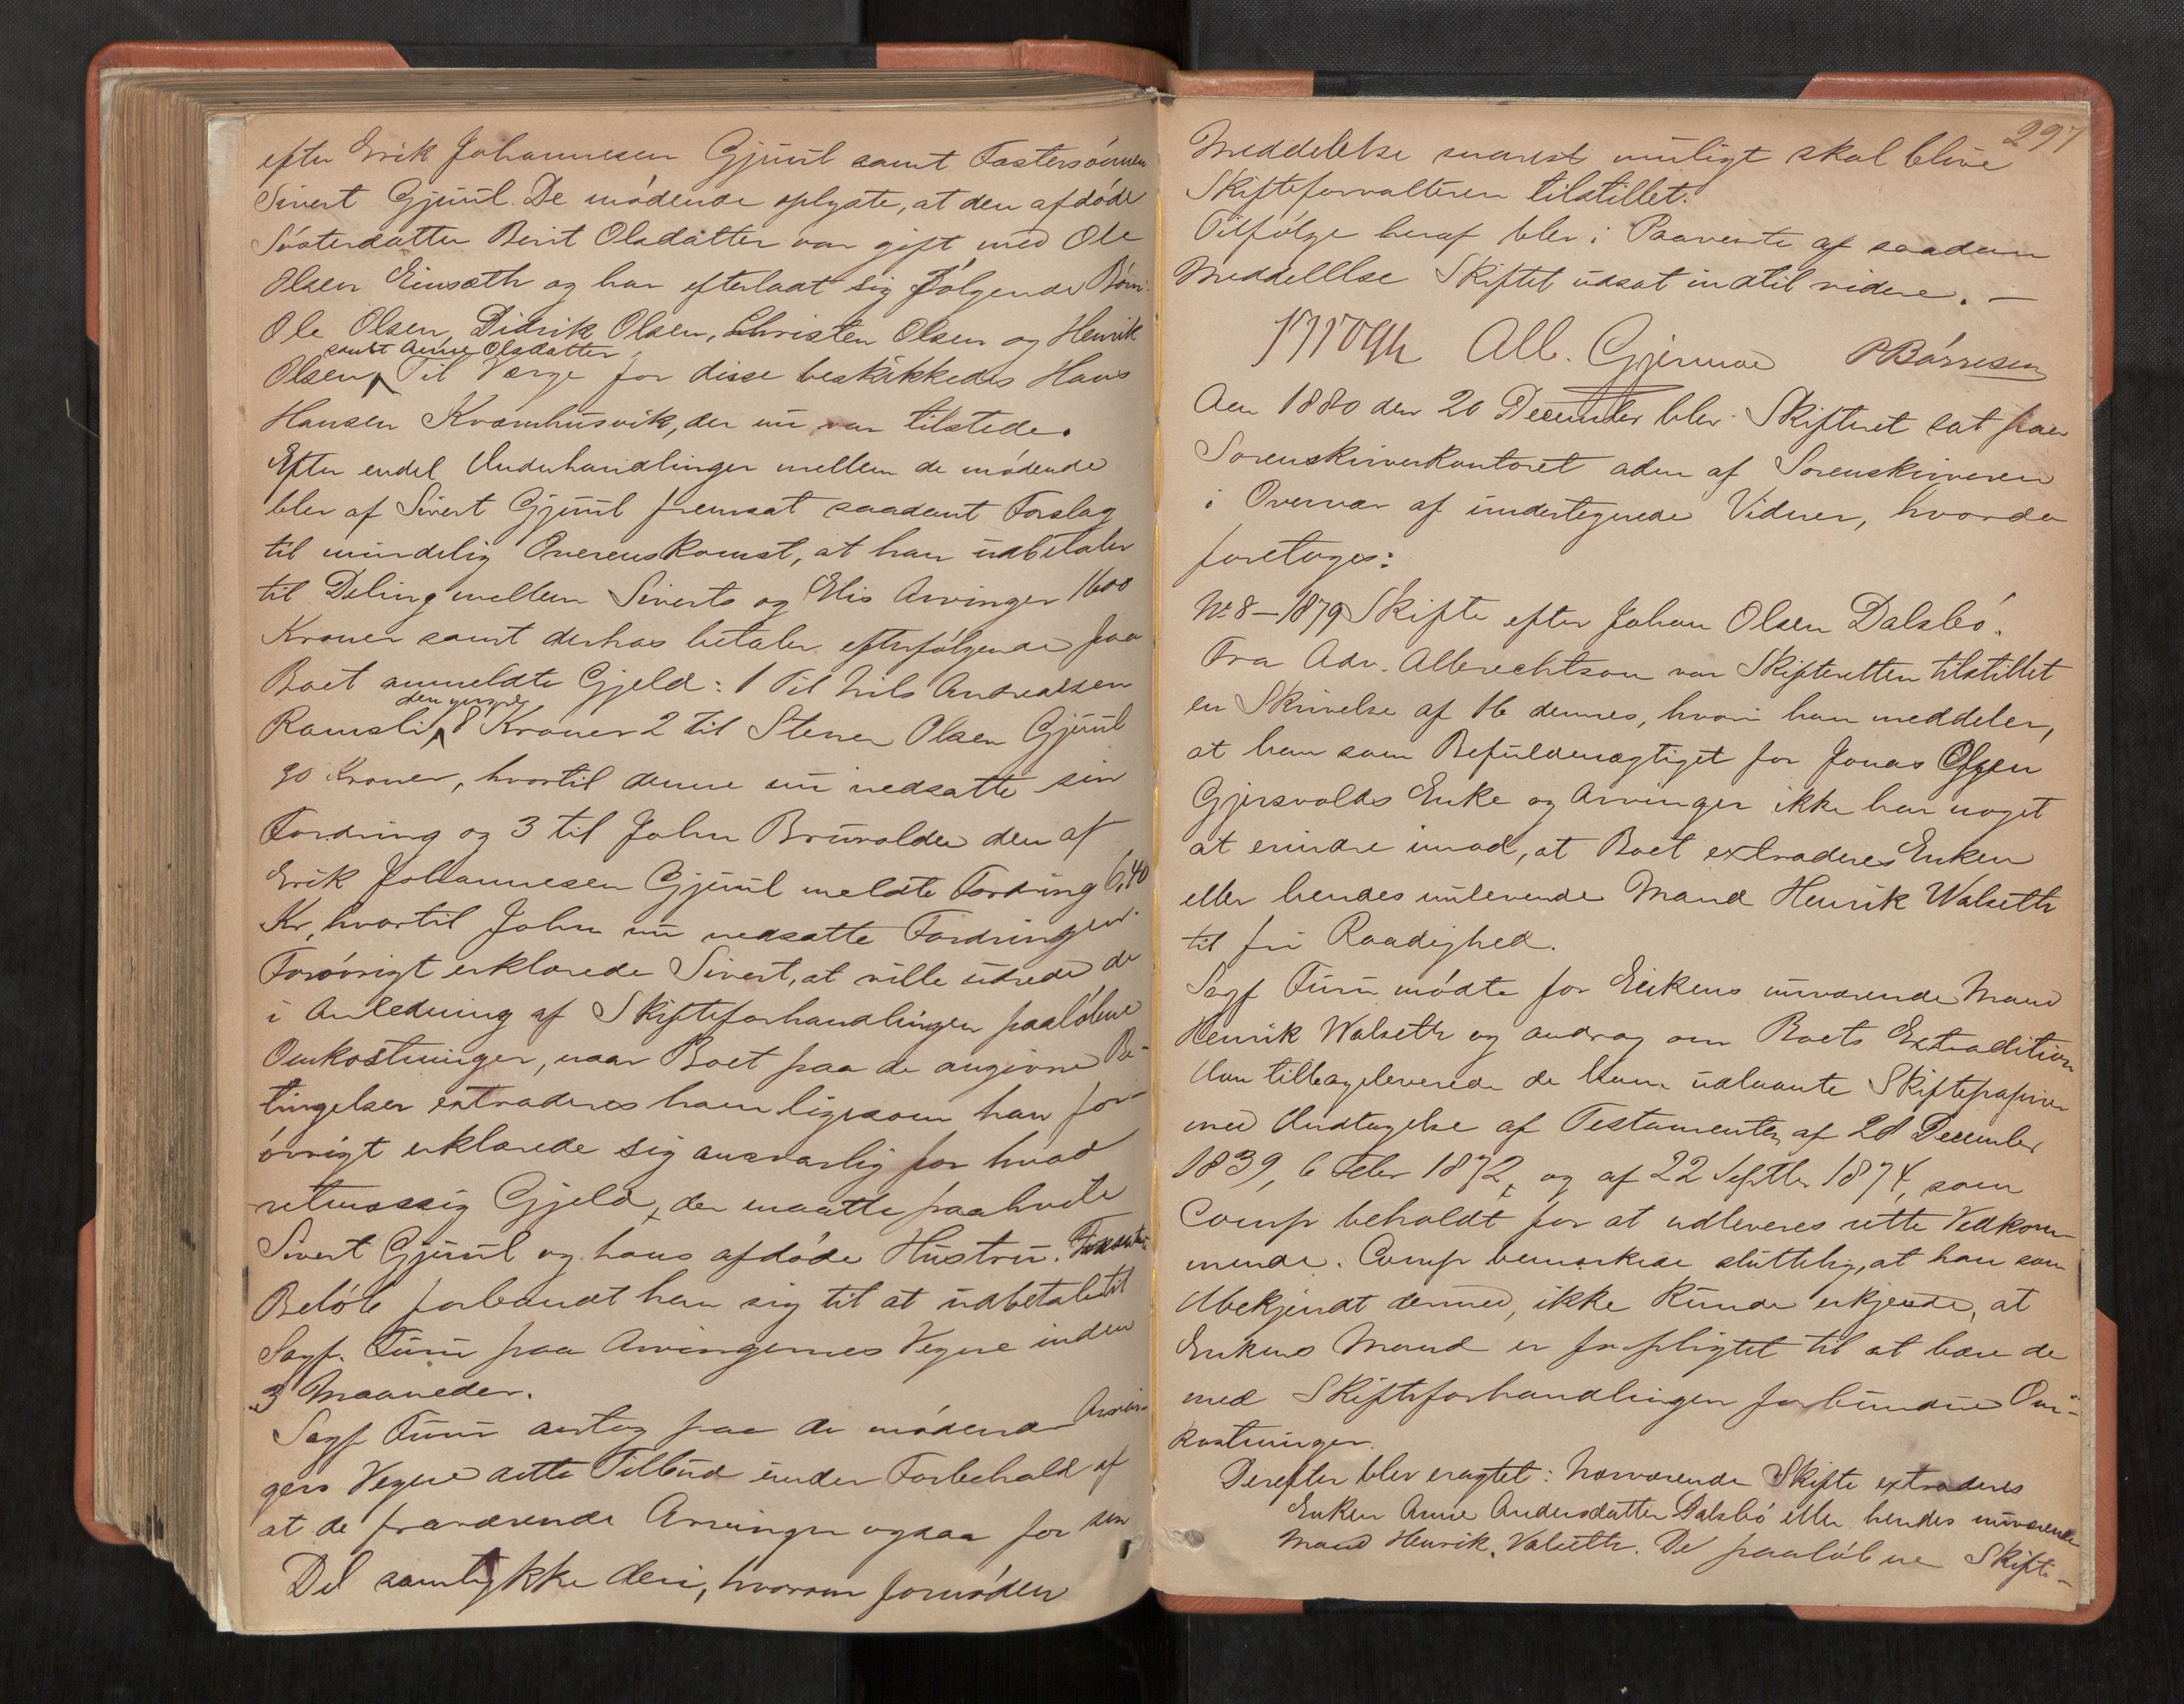 efter Erik Johannesen Gjuul samt Fostersønnen
Sivert Gjuul. De mødende oplyste, at den afdøde
Søsterdatter Berit Olsdatter var gift med Ole
Olsen Einsæth og har efterladt sig følgende Børn:
Ole Olsen, Didrik Olsen, Christen Olsen og Henrik
samt Anne Olsdatter
Olsen, Til Værge for disse beskikkedes Hans
Hansen Kvamhusvik, der nu var tilstede.
Efter endel Underhandlinger mellem de mødende
blev af Sivert Gjuul fremsat saadant Forslag
til mindelig Overenskomst, at han udbetaler
til Deling mellem Siverts og Elis Arvinger 1600
Kroner samt derhos betaler efterfølgende paa
Boet anmeldte Gjeld: 1 Til Nils Andreassen
Ramsli 8 Kroner 2 til Stener Olsen Gjuul
90 Kroner, hvortil denne nu nedsatte sin
Fordring og 3 til John Bruvolden den af
Erik Johannesen Gjuul meldte Fordring 6,40
Kr, hvortil John nu nedsatte Fordringen.
Forøvrigt erklærede Sivert, at ville udrede de
i Anledning af Skifteforhandlingen paaløbne
Omkostninger, naar Boet paa de angivne Be-
tingelser extraderes ham ligesom han for-
øvrigt erklærede sig ansvarlig for hvad
retmæssig Gjeld, der maatte paahvile
Sivert Gjuul og hans afdøde Hustru.
Beløb forbandt han sig til at udbetale til
Sagf. Fuur paa Arvingernes Vegne inden
3 Maaneder.
Sagf Fuur antog paa de mødende Arvin-
gers Vegne dette Tilbud under Forbehold af
at de fraværende Arvinger ogsaa for sin
Del samtykke deri, hvorom fornøden
297
Meddelelse snarest muligt skal blive
Skifteforvalteren tilstillet.
Tilfølge heraf blev i Paavente af saadan
Meddelelse Skiftet udsat indtil videre. -
Krogh Alb. Gjermoe P Børresen
Aar 1880 den 20 December blev Skifteret sat paa
Sorenskriverkontoret adm af Sorenskriveren
i Overvær af undertegnede Vidner, hvorda
foretoges:
No 8 - 1879 Skifte efter Johan Olsen Dalsbø.
Fra Adv. Albrechtson var Skifteretten tilstillet
en Skrivelse af 16 dennes, hvori han meddeler,
at han som Befuldmægtiget for Jonas Olsen
Gjersvolds Enke og Arvinger ikke har noget
at erindre imod, at Boet extraderes Enken
eller hendes nulevende Mand Henrik Walseth
til fri Raadighed.
Sagf Fuur mødte for Enkens nuværende Mand
Henrik Walseth og androg om Boets Extradition
Han tilbageleverede de ham udlaante Skiftepapirer
med Undtagelse af Testamenter af 28 December
1839, 6 Febr 1872, og af 22 Septbr 1874, som
Comp beholdt for at udleveres rette Vedkom-
mende. Comp bemærkede sluttelig, at han som
Ubekjendt dermed, ikke kunde erkjende, at
Enkens Mand er forpligtet til at bære de
med Skifteforhandlingen forbundne Om-
kostninger.
Derefter blev eragtet: Nærværende Skifte extraderes
Enken Anne Andersdatter Dalsbø eller hendes nuværende
Mand Henrik Valseth. De paaløbne Skifte-